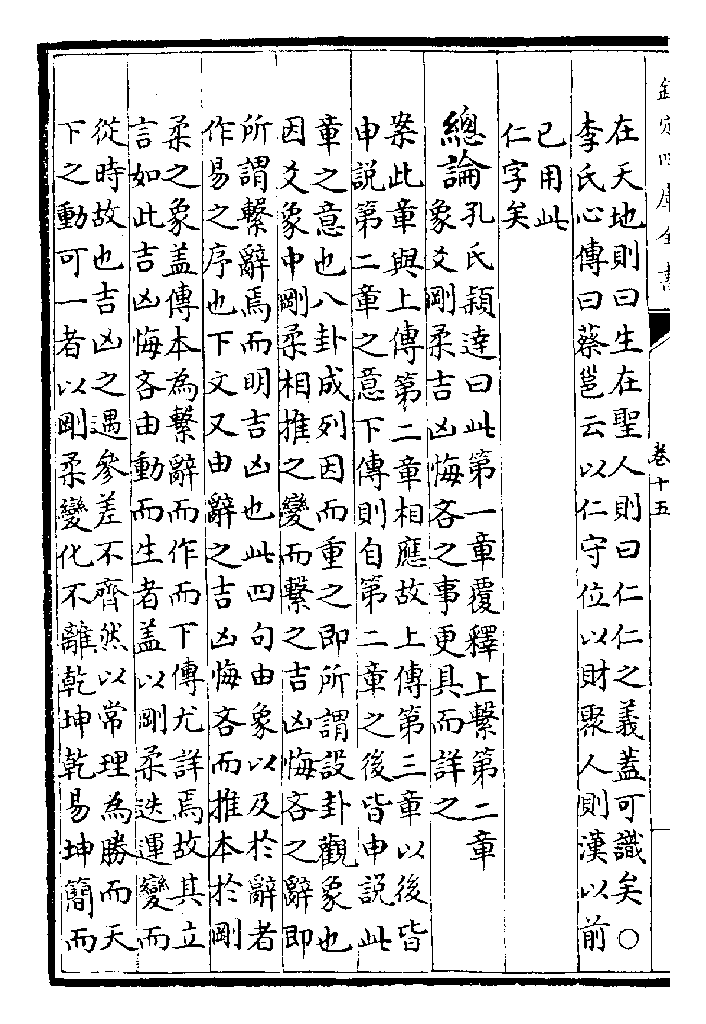 欽定四庫全書
卷十五
在天地則曰生在聖人則曰仁仁之義蓋可識矣○
李氏心傳曰蔡邕云以仁守位以財聚人則漢以前
已用此
仁字矣
總論孔氏穎達曰此第一章覆釋上繫第二章
象爻剛柔吉凶悔吝之事更具而詳之
案此章與上傳第二章相應故上傳第三章以後皆
申説第二章之意下傳則自第二章之後皆申説此
章之意也八卦成列因而重之即所謂設卦觀象也
因爻象中剛柔相推之變而繫之吉凶悔吝之辭即
所謂繫辭焉而明吉凶也此四句由象以及於辭者
作易之序也下文又由辭之吉凶悔吝而推本於剛
柔之象盖傳本為繫辭而作而下傳尤詳焉故其立
言如此吉凶悔吝由動而生者盖以剛柔迭運變而
從時故也吉凶之遇參差不齊然以常理為勝而天
下之動可一者以剛柔變化不離乾坤乾易坤簡而